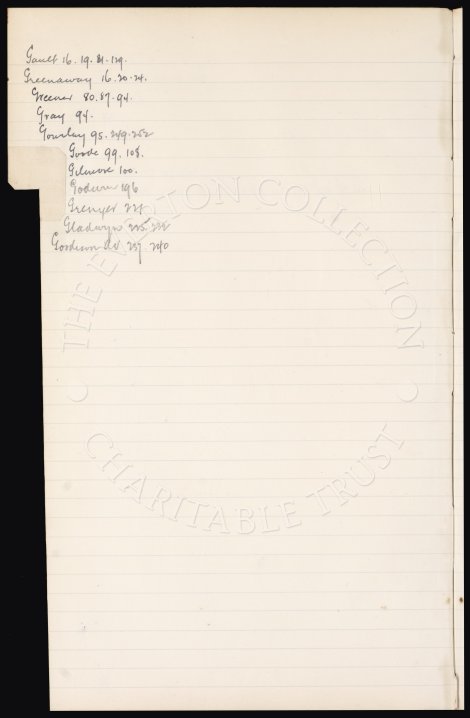 Gault 16. 19. 81. 129.
Greenaway 16. 20. 24.
Greener 80. 87. 94.
Gray 94.
Gourlay 95. 249. 252
Goode 99. 108.
Gilmore 100.
196
Grenyer 221
Gladwyn 225. 232
Goodison Rd 237. 240
THE EVERTON COLLECTION
CHARITABLE TRUST